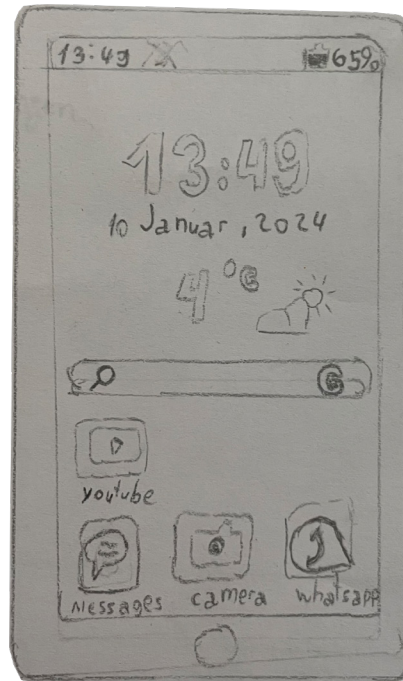 13:49 65%
13:49
10 Januar, 2024
4 °C
G
youtube
Messages camera whatsapp